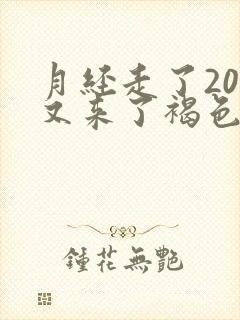 月经走了20
又来了褐色
鍾花無艷